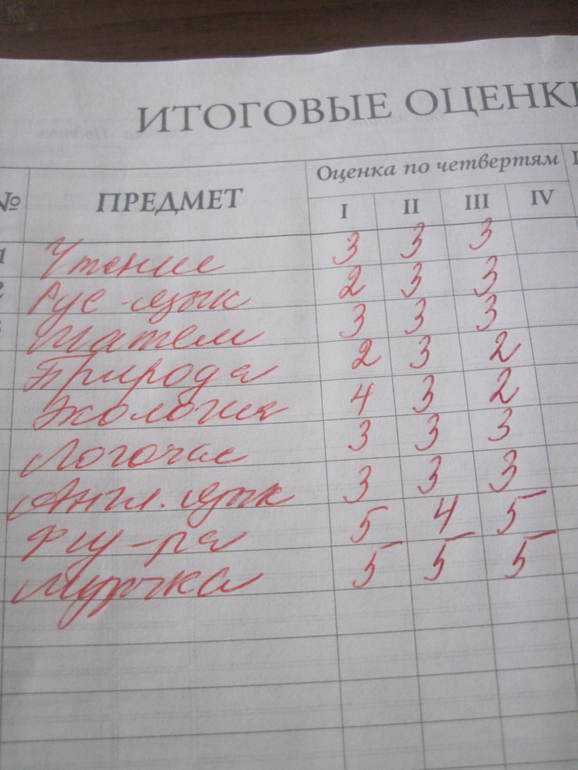 ИТОГОВЫЕ ОЦЕНКИ
№ ПРЕДМЕТ Оценка по четвертям
I II III IV
1 Чтение 3 3 3
2 Рус-язык 2 3 3
Матем 3 3 3
Природа 2 3 2
Экология 4 3 2
Логочас 3 3 3
Англ. язык 3 3 3
Физ-ра 5 4 5
5 5 5